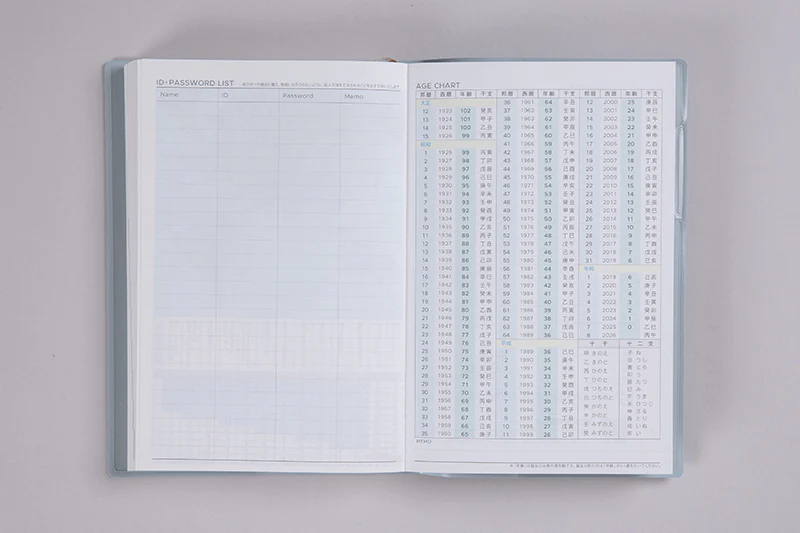 ID+PASSWORD LIST
Name ID Password Memo
AGE CHART
邦暦 西暦 年齢 干支
大正
12 1923 102 癸亥
13 1924 101 甲子
14 1925 100 乙丑
15 1926 99 丙寅
昭和
1 1926 99 丙寅
2 1927 98 丁卯
3 1928 97 戊辰
4 1929 96 己巳
5 1930 95 庚午
6 1931 94 辛未
7 1932 93 壬申
8 1933 92 癸酉
9 1934 91 甲戌
10 1935 90 乙亥
11 1936 89 丙子
12 1937 88 丁丑
13 1938 87 戊寅
14 1939 86 己卯
15 1940 85 庚辰
16 1941 84 辛巳
17 1942 83 壬午
18 1943 82 癸未
19 1944 81 甲申
20 1945 80 乙酉
21 1946 79 丙戌
22 1947 78 丁亥
23 1948 77 戊子
24 1949 76 己丑
25 1950 75 庚寅
26 1951 74 辛卯
27 1952 73 壬辰
28 1953 72 癸巳
29 1954 71 甲午
30 1955 70 乙未
31 1956 69 丙申
32 1957 68 丁酉
33 1958 67 戊戌
34 1959 66 己亥
35 1960 65 庚子
邦暦 西暦 年齢 干支
36 1961 64 辛丑
37 1962 63 壬寅
38 1963 62 癸卯
39 1964 61 甲辰
40 1965 60 乙巳
41 1966 59 丙午
42 1967 58 丁未
43 1968 57 戊申
44 1969 56 己酉
45 1970 55 庚戌
46 1971 54 辛亥
47 1972 53 壬子
48 1973 52 癸丑
49 1974 51 甲寅
50 1975 50 乙卯
51 1976 49 丙辰
52 1977 48 丁巳
53 1978 47 戊午
54 1979 46 己未
55 1980 45 庚申
56 1981 44 辛酉
57 1982 43 壬戌
58 1983 42 癸亥
59 1984 41 甲子
60 1985 40 乙丑
61 1986 39 丙寅
62 1987 38 丁卯
63 1988 37 戊辰
64 1989 36 己巳
平成
1 1989 36 己巳
2 1990 35 庚午
3 1991 34 辛未
4 1992 33 壬申
5 1993 32 癸酉
6 1994 31 甲戌
7 1995 30 乙亥
8 1996 29 丙子
9 1997 28 丁丑
10 1998 27 戊寅
11 1999 26 己卯
邦暦 西暦 年齢 干支
12 2000 25 庚辰
13 2001 24 辛巳
14 2002 23 壬午
15 2003 22 癸未
16 2004 21 甲申
17 2005 20 乙酉
18 2006 19 丙戌
19 2007 18 丁亥
20 2008 17 戊子
21 2009 16 己丑
22 2010 15 庚寅
23 2011 14 辛卯
24 2012 13 壬辰
25 2013 12 癸巳
26 2014 11 甲午
27 2015 10 乙未
28 2016 9 丙申
29 2017 8 丁酉
30 2018 7 戊戌
31 2019 6 己亥
令和
1 2019 6 己亥
2 2020 5 庚子
3 2021 4 辛丑
4 2022 3 壬寅
5 2023 2 癸卯
6 2024 1 甲辰
7 2025 0 乙巳
8 2026 丙午
十干 十二支
甲 きのえ 子 ね
乙 きのと 丑 うし
丙 ひのえ 寅 とら
丁 ひのと 卯 う
戊 つちのえ 辰 たつ
己 つちのと 巳 み
庚 かのえ 午 うま
辛 かのと 未 ひつじ
壬 みずのえ 申 さる
癸 みずのと 酉 とり
戌 いぬ
亥 い
MEMO